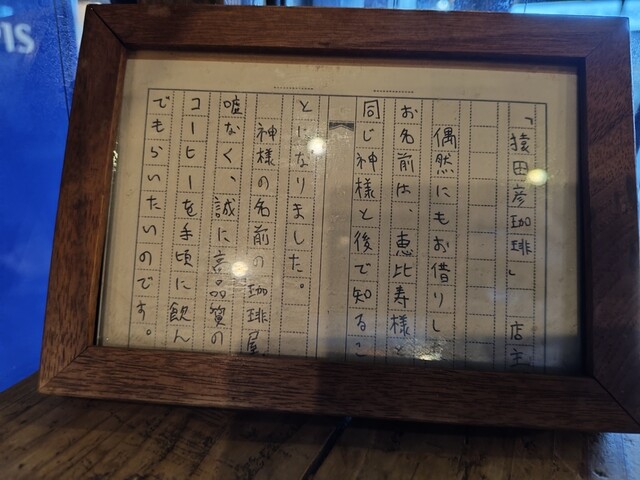 「猿田彦珈琲」 店主
偶然にもお借りし
お名前は、恵比寿様と
同じ神様と後で知るこ
とになりました。
神様の名前の珈琲屋
嘘なく、誠に高品質の
コーヒーを手頃に飲ん
でもらいたいのです。
PIS